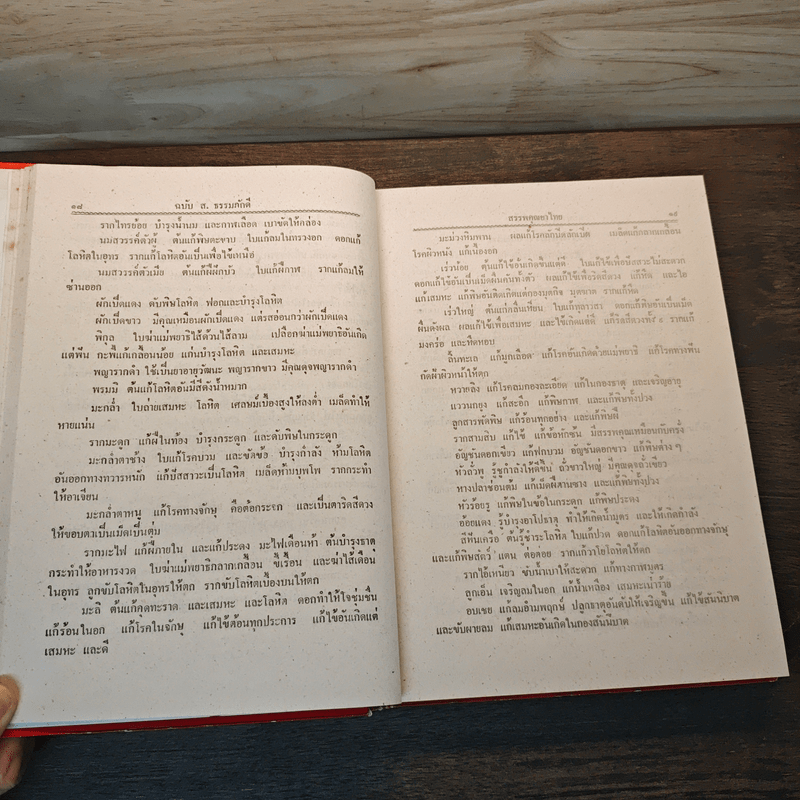 ๑๘ ฉบับ ส. ธรรมภักดี
รากไทรย้อย บำรุงน้ำนม และกาฬเลือด เบาขัดให้คล่อง
นมสวรรค์ตัวผู้ ต้นแก้พิษตะขาบ ใบแกลมในทรวงอก ดอกแก้
โลหิตในอุทร รากแก้โลหิตอันเป็นเพื่อไข้เหนือ
นมสวรรค์ตัวเมีย ต้นแก้ฝีกบัว ใบแก้ฝีกาฬ รากแก้ลมให้
ซ่านออก
ผักเป็ดแดง ดับพิษโลหิต ฟอกและบำรุงโลหิต
ผักเป็ดขาว มีคุณเหมือนผักเป็ดแดง แต่รสอ่อนกว่าผักเป็ดแดง
พิกุล ใบฆ่าแม่พยาธิไส้ด้วนไส้ลาม เปลือกฆ่าแม่พยาธิอันเกิด
แต่ฟัน กะพี้แก้เกลื้อนน้อย แก่นบำรุงโลหิต และเสมหะ
พญารากดำ ใช้เป็นยาอายุวัฒนะ พญารากขาว มีคุณดุจพญารากดำ
พรมมิ ต้นแก้โลหิตอันมีสีดังน้ำหมาก
มะกล่ำ ใบถ่ายเสมหะ โลหิต เศลษม์เบื้องสูงให้ลงต่ำ เมล็ดทำให้
หายแน่น
รากมะดูก แก้ฝีในท้อง บำรุงกระดูก และดับพิษในกระดูก
มะกล่ำตาช้าง ใบแก้โรคบวม และขัดข้อ บำรุงกำลัง ห้ามโลหิต
อันออกทางทวารหนัก แก้ปัสสาวะเป็นโลหิต เมล็ดห้ามบุพโพ รากกระทำ
ให้อาเจียน
มะกล่ำตาหนู แก้โรคทางจักษุ คือต้อกระจก และเป็นตาริดสีดวง
ให้ขอบตาเป็นเม็ดเป็นตุ่ม
รากมะไฟ แก้ฝีภายใน และแก้ประดง มะไฟเดือนห้า ต้นบำรุงธาตุ
กระทำให้อาหารงวด ใบฆ่าแม่พยาธิกลากเกลื้อน ขี้เรื้อน และฆ่าไส้เดือน
ในอุทร ลูกขับโลหิตในอุทรให้ตก รากขับโลหิตเบื้องบนให้ตก
มะลิ ต้นแก้คุดทะราด และเสมหะ และโลหิต ดอกทำให้ใจชุ่มชื่น
แก้ร้อนในอก แก้โรคในจักษุ แก้ไข้ต้อนทุกประการ แก้ไข้อันเกิดแต่
เสมหะ และดี
สรรพคุณยาไทย ๑๙
มะม่วงหิมพาน ผลแก้โรคลักปิดลักเปิด เมล็ดแก้กลากเกลื้อน
โรคผิวหนัง แก้เนื้องอก
เร่วน้อย ต้นแก้ไข้อันเกิดขึ้นแต่ดี ใบแก้ไข้เพื่อปัสสาวะไม่สะดวก
ดอกแก้ไข้อันเป็นเม็ดผื่นคันทั้งตัว ผลแก้ไข้เพื่อริดสีดวง แก้หืด และไอ
แก้เสมหะ แก้พิษอันติดเกิดแต่กองมุตกิจ มุตฆาต รากแก้หืด
เร่วใหญ่ ต้นแก้กลื่นเหียน ใบแก้มุตรกรส ดอกแก้พิษอันเป็นเม็ด
ผื่นดังผด ผลแก้ไข้เพื่อเสมหะ และไข้เกิดแต่ดี แก้ริดสีดวงทั้ง ๘ รากแก้
มงคร่อ และหืดหอบ
ลิ้นทะเล แก้มูกเลือด แก้โรคอันเกิดด้วยแม่พยาธิ แก้โรคทางฟัน
กัดฝ้าผิวหน้าให้ตก
หวายลิง แก้โรคลมกองละเอียด แก้ในกองธาตุ และเจริญอายุ
แววนกยูง แก้สะอึก แก้พิษกาฬ และแก้พิษทั้งปวง
ลูกสารพัดพิษ แก้ร้อนทุกอย่าง และแก้พิษฝี
รากสามสิบ แก้ไข้ แก้ข้อหักซ้น มีสรรคุณเหมือนกับครั่ง
อัญชันดอกเขียว แก้ฟกบวม อัญชันดอกขาว แก้พิษต่าง ๆ
หัวถั่วพู รู้ชูกำลังให้ดีขึ้น ถั่วขาวใหญ่ มีคุณดุจถั่วเขียว
หางปลาช่อนต้ม แก้เม็ดฝีสานซาง และแก้พิษทั้งปวง
หัวร้อยรู แก้พิษในข้อในกระดูก แก้พิษประดง
อ้อยแดง รู้บำรุงอาโปธาตุ ทำให้เกิดน้ำมูตร และให้เกิดกำลัง
สีหีนเครือ ต้นรู้ชำระโลหิต ใบแก้ปวด ดอกแก้โลหิตอันออกทางจักษุ
และแก้พิษสัตว์ แตน ต่อต่อย รากแก้วาโยโลหิตให้ตก
รากไอ้เหนียว ขับน้ำเบาให้สะดวก แก้ทางกาฬมูตร
ลูกเอ็น เจริญลมในอก แก้น้ำเหลือง เสมหะเน่าร้าย
อบเชย แก้ลมอัมพฤกษ์ ปลูกธาตุอันดับให้เจริญขึ้น แก้ไข้สันนิบาต
และขับผายลม แก้เสมหะอันเกิดในกองสันนิบาต